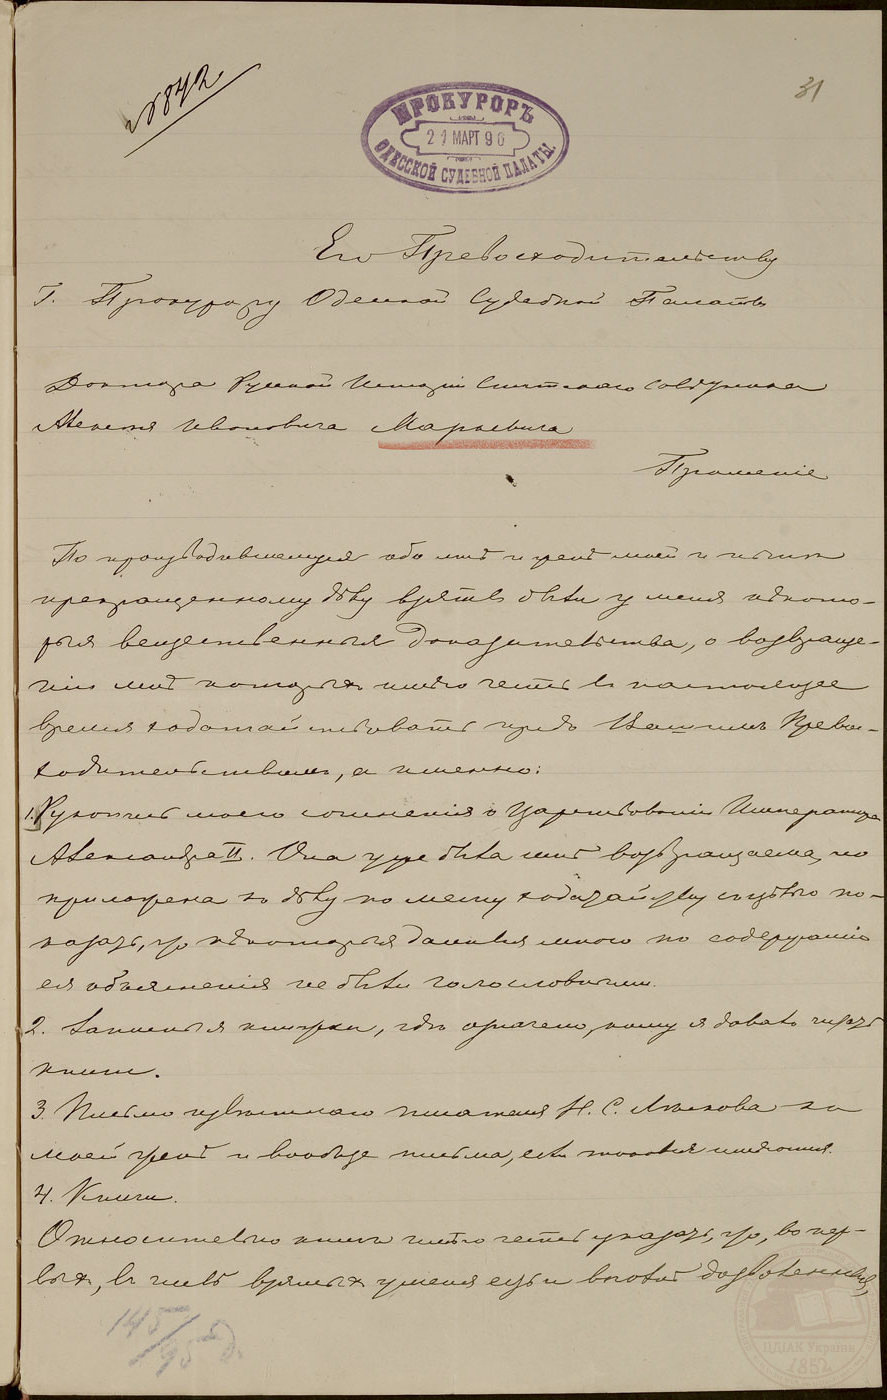 № 842
31
ПРОКУРОРЪ
21 МАРТ 90
ОДЕССКОЙ СУДЕБНОЙ ПАЛАТЫ.
Его Превосходительству
Г. Прокурору Одесской Судебной Палаты
Доктора Русской Исторіи Статскаго Советника
Алексея Ивановича Маркевича
Прошеніе
По производившемуся обо мнѣ и
прекращенному дѣлу взяты были у меня нѣкото-
рыя вещественныя доказательства, о возвраще-
ніи мнѣ которыхъ имѣю честь въ настоящее
время ходатайствовать предъ Вашимъ Превос-
ходительствомъ, а именно:
1. Рукопись моего сочиненія о Царствованіи Императора
Александра II. Она уже была мнѣ возвращаема, но
приложена къ дѣлу по моему ходатайству съ цѣлью по-
казать, что нѣкоторыя данныя мною по содержанію
ея объясненія не были голословными.
2. Записныя книжки, гдѣ означено, кому я давалъ читать
книги.
3. Письмо извѣстнаго писателя Н. С. Лѣскова ко
моей женѣ и вообще письма, если таковыя имѣются.
4. Книги.
Относительно книгъ имѣю честь указать, что, во пер-
выхъ, въ числѣ взятыхъ у меня есть и вполнѣ дозволенныя,
145/95 д.
ЦДІАК України
1852